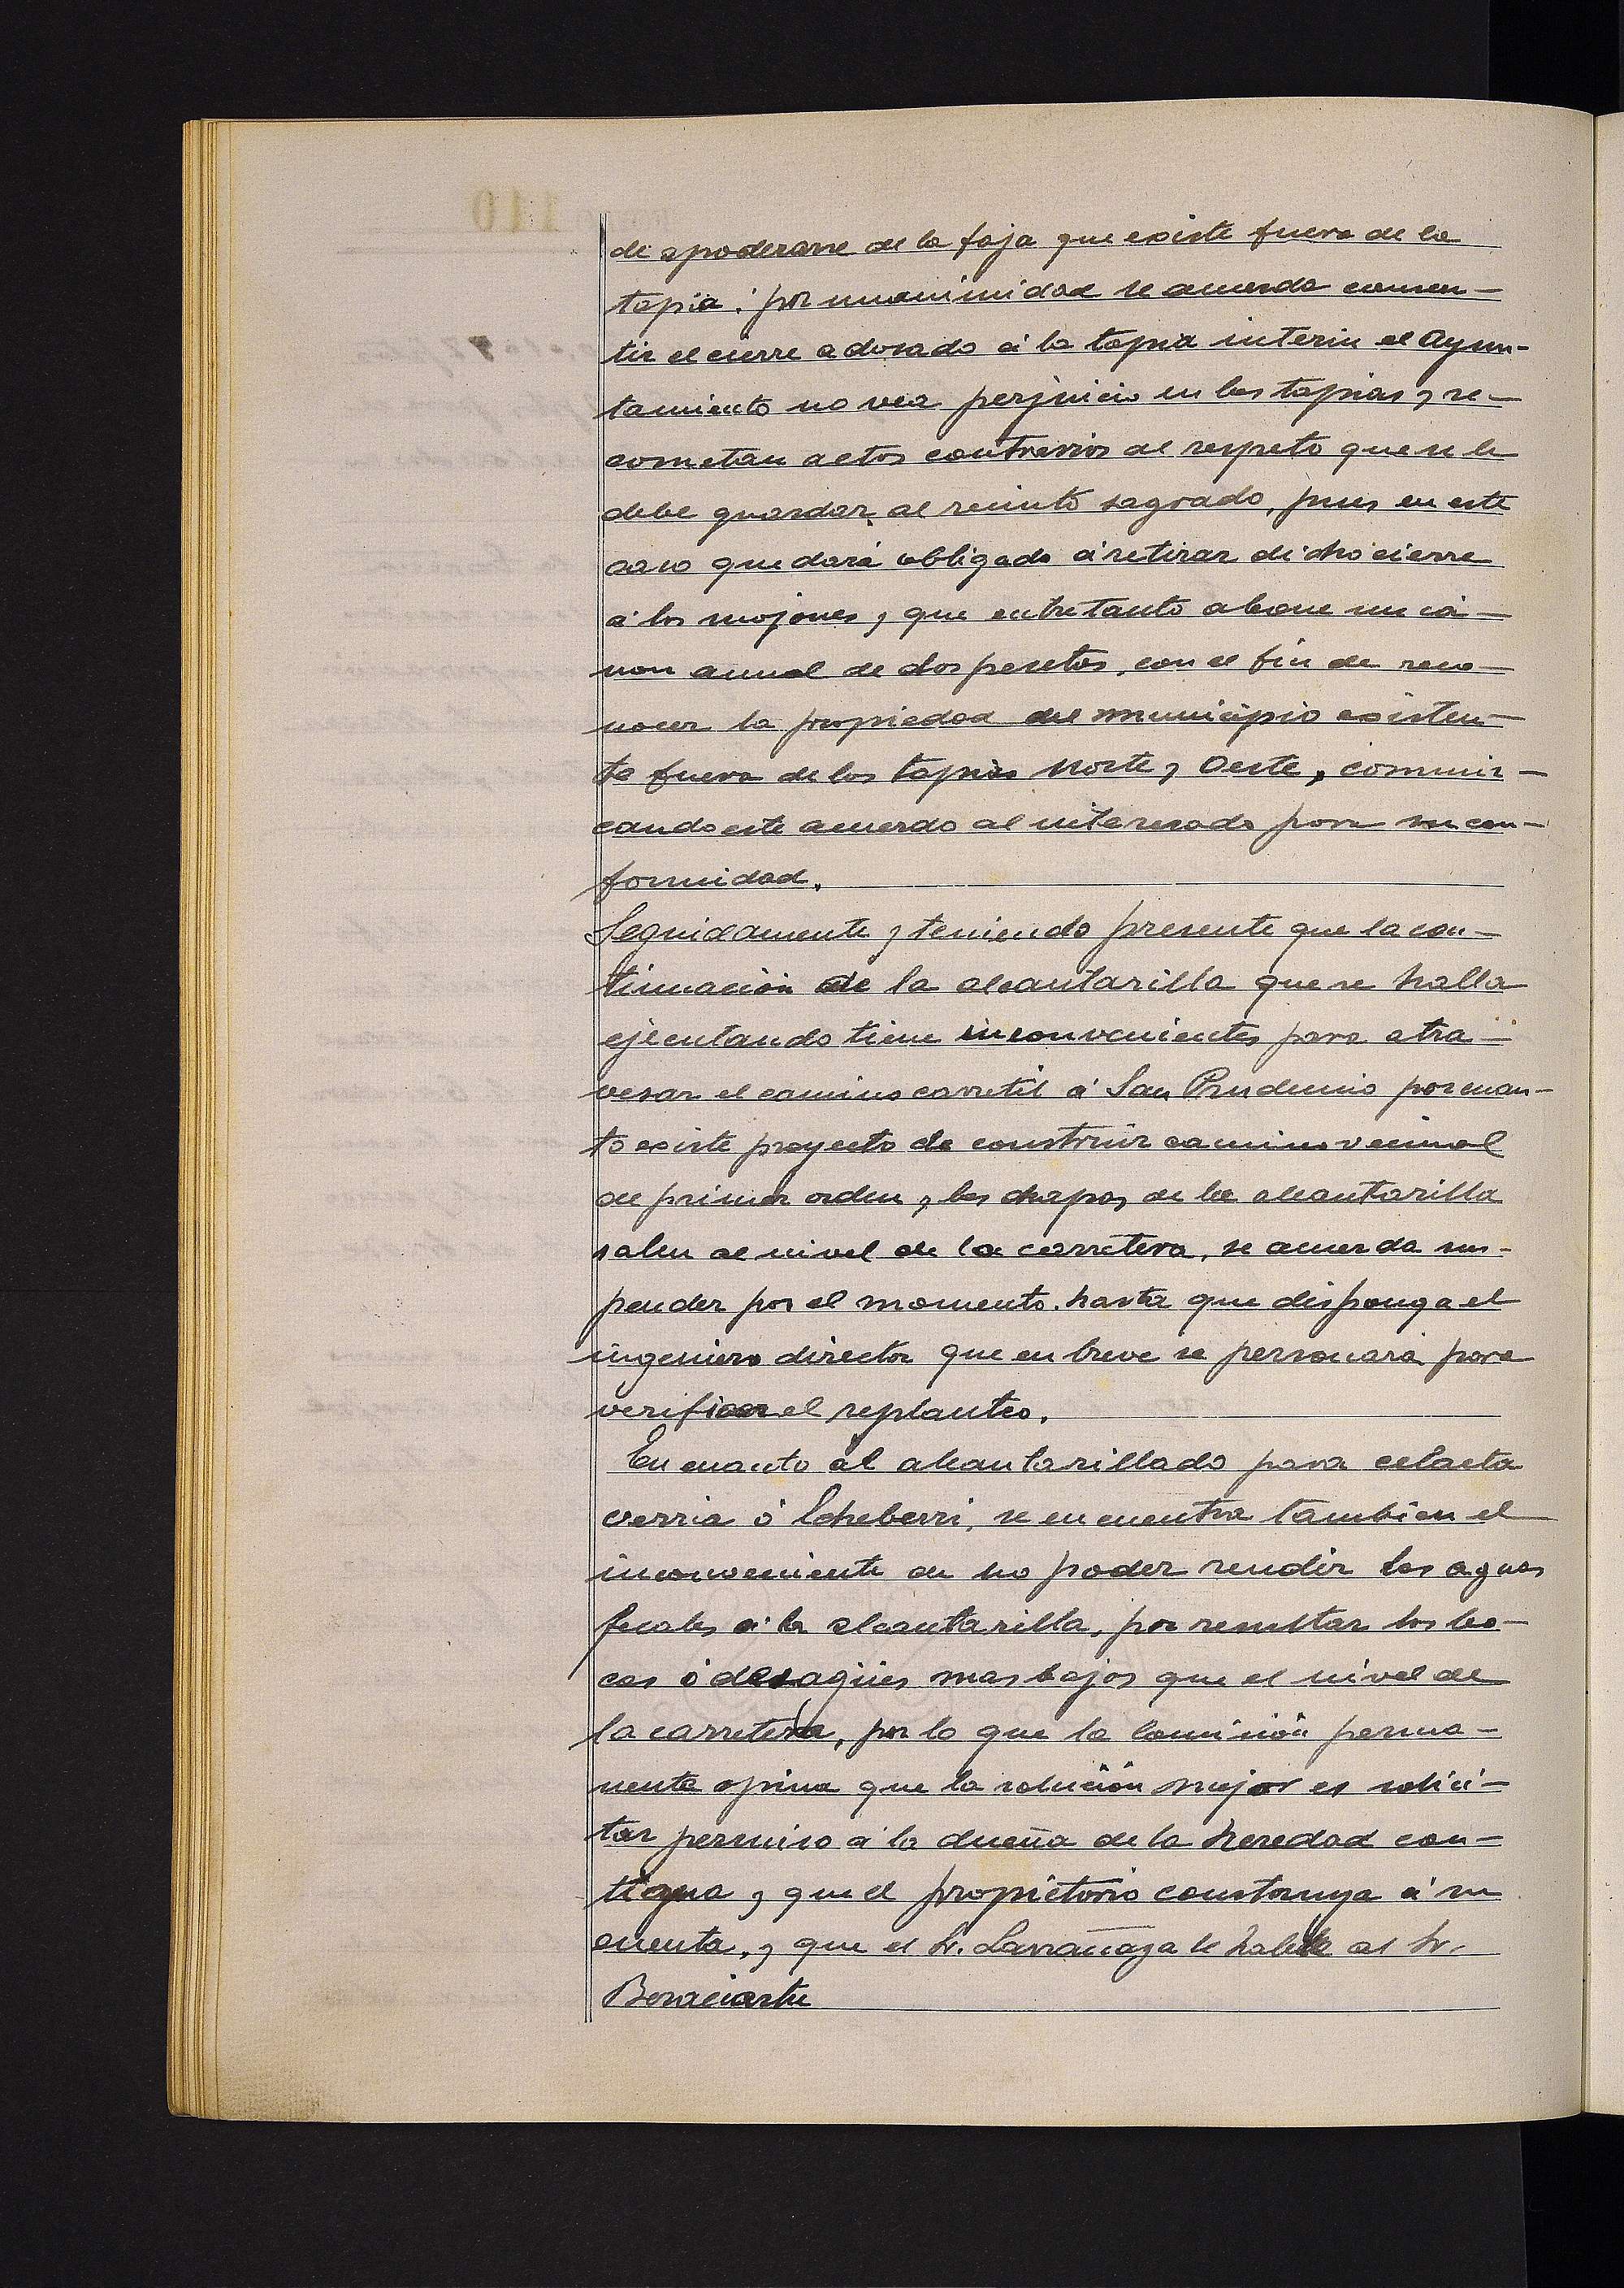 de apoderarse de la faja que existe fuera de la
tapia: por unanimidad se acuerda consen-
tir el cierre adosado á la tapia interin el Ayun-
tamiento no vea perjuicio en las tapias y se
cometan actos contrarios al respeto que se le
debe guardar al recinto sagrado, pues en este
caso quedará obligado á retirar dicho cierre
á los mojones, y que entretanto abone un cá-
non anual de dos pesetas, con el fin de reco-
nocer la propiedad del municipio existen-
te fuera de las tapias Norte y Oeste, comuni-
cando este acuerdo al interesado para su con-
formidad.
Seguidamente y teniendo presente que la con-
tinuación de la alcantarilla que se halla
ejecutando tiene inconvenientes para atra-
vesar el camino carretil á San Prudencio por cuan-
to existe proyecto de construir camino vecinal
de primer orden y las chapas de la alcantarilla
salen al nivel de la carretera, se acuerda sus-
pender por el momento, hasta que disponga el
ingeniero director que en breve se personará para
verificar el replanteo.
En cuanto al alcantarillado para celaeta
verria ó Echeberri, se encuentra tambien el
inconveniente de no poder rendir las aguas
fecales á la alcantarilla, por resultar las bo-
cas ó desagües mas bajos que el nivel de
la carretera, por lo que la Comisión perma-
nente opina que la solución mejor es solici-
tar permiso á la dueña de la heredad con-
tigua y que el propietario construya á su
cuenta, y que el Sr. Larrañaga le hable al Sr.